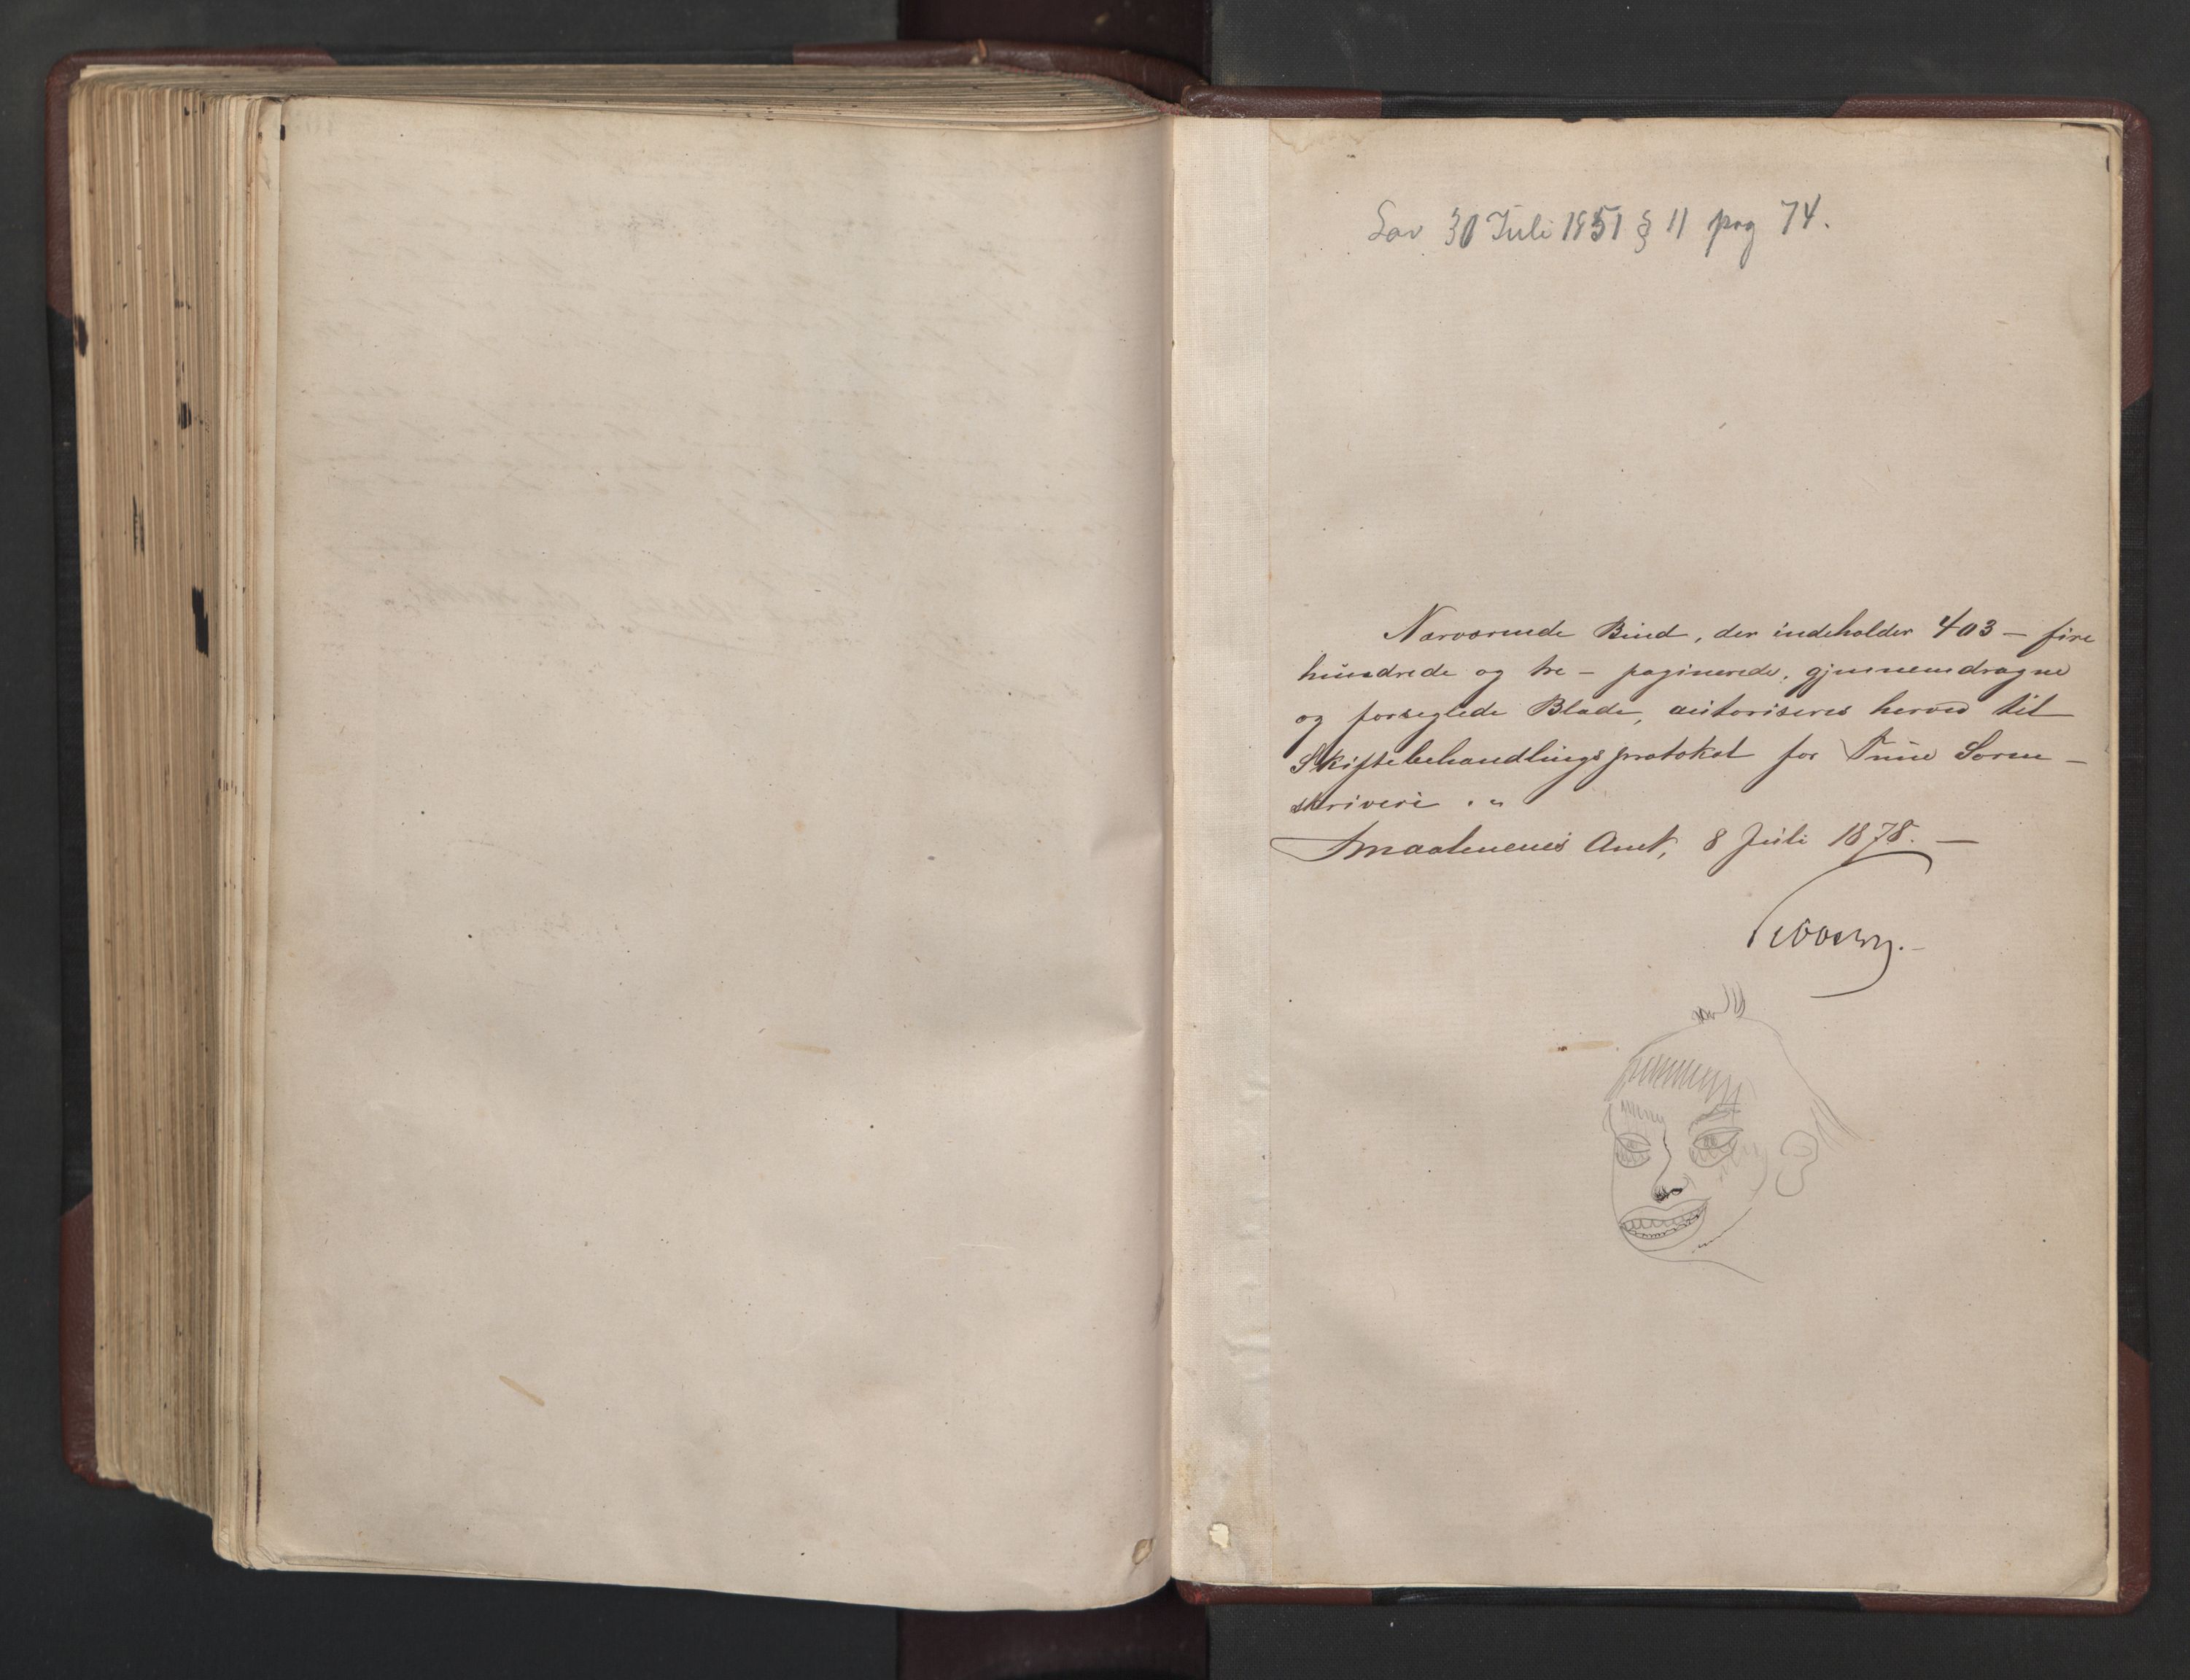 Lov 30 Juli 1851 § 11 pag 74.
Nærværende Bind, der indeholder 403 – fire
hundrede og tre – paginerede, gjennemdragne
og forseglede Blade, autoriseres herved til
Skiftebehandlingsprotokol for Tune Soren-
skriveri.
Smaalenenes Amt, 8 Juli 1878. —